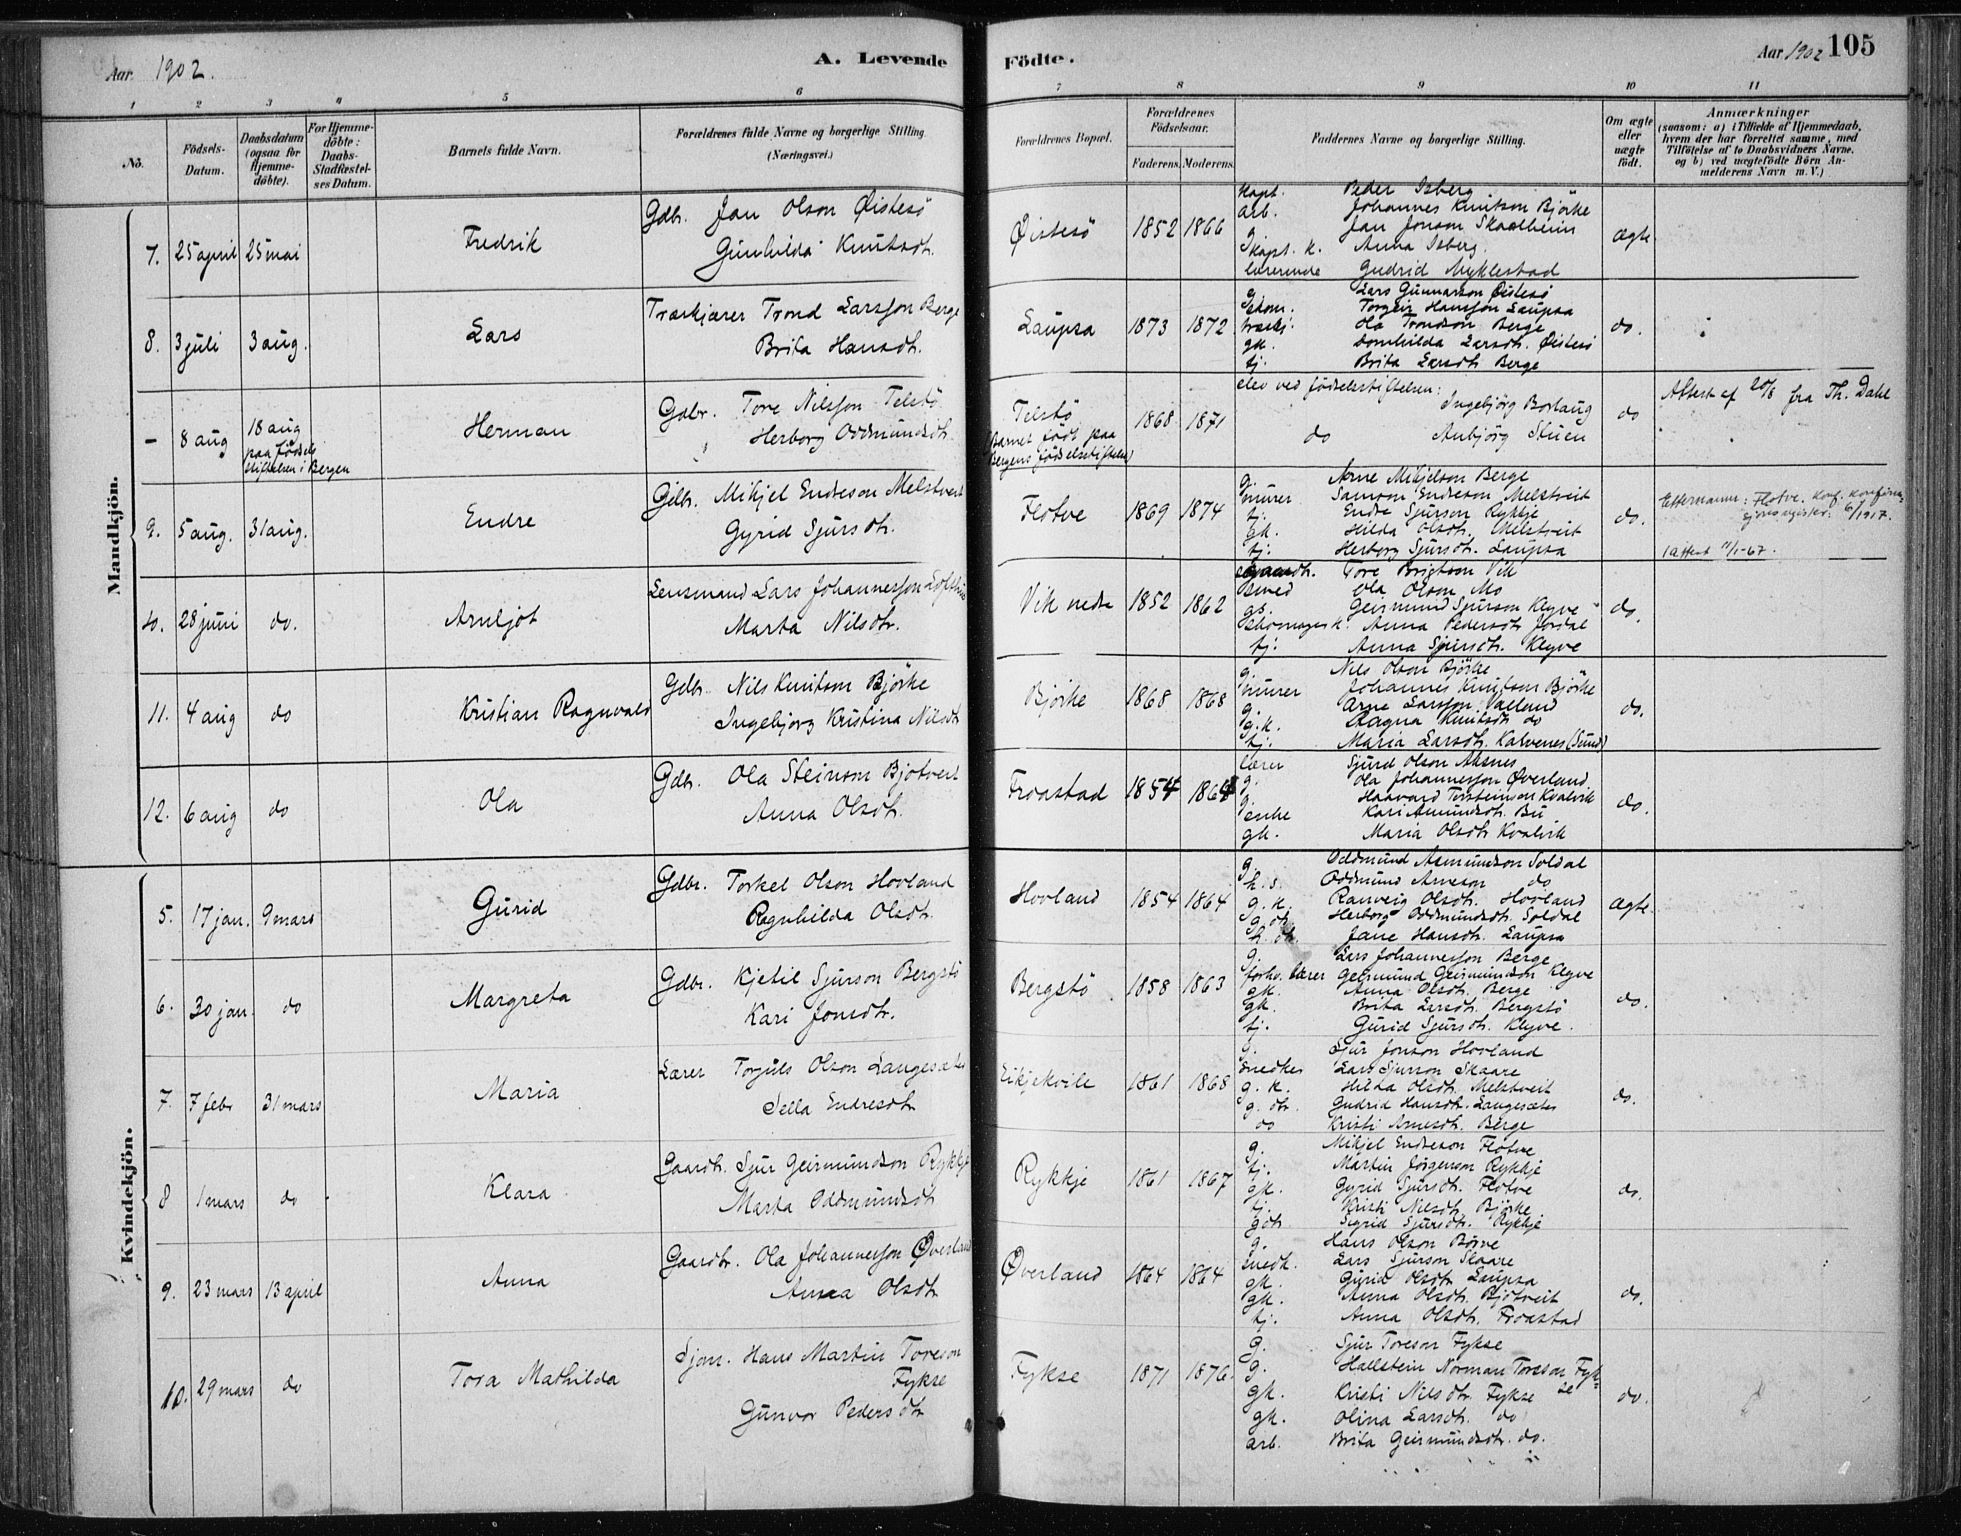 Aar. 1902.
A. Levende Födte.
Aar 1902 105
1 2 3 4 5 6 7 8 9 10 11
No.
Födsels-Datum.
Daabsdatum (ogsaa for Hjemmedöbte).
For Hjemmedöbte: Daabs-Stadfæstelses Datum.
Barnets fulde Navn.
Forældrenes fulde Navne og borgerlige Stilling. (Næringsvei.)
Forældrenes Bopæl.
Forældrenes Födselsaar.
Faderens. Moderens.
Faddernes Navne og borgerlige Stilling.
Om ægte eller uægte födt.
Anmærkninger
(saasom: a) i Tilfælde af Hjemmedaab, hvem der har forrettet samme, med Tilföielse af to Daabsvidners Navne, og b) ved uægtefödte Börn Anmelderens Navn m. V.)
Mandkjön.
7. 25 april 25 mai Fredrik
Gdbr. Jan Olson Øistesö
Gunhilda Knutsdtr.
Øistesö 1852 1866
Kapt. Peder Isberg
arb. Johannes Knutson Björke
g. Jan Jonson Skaalheim
Kapt. k. Anna Isberg
lærerinde Gudrid Myklestad
ægte
8. 3 juli 3 aug. Lars
Træskjærer Trond Larsson Berge
Brita Hansdtr.
Laupsa 1873 1872
g. Lars Gunnarson Øistesö
Torgeir Hansson Laupsa
træskj. Ola Trondson Berge
gk. Domhilda Larsdtr. Øistesö
tj. Brita Larsdtr Berge
do.
- 8 aug 18 aug paa Födselsstiftelsen i Bergen Herman
Gdbr. Tore Nilsson Telstö
Herborg Oddmundsdtr.
Telstö (Barnet födt paa Bergens födselsstiftelse) 1868 1871
elev ved födselsstiftelsen:
Ingebjörg Borlaug
do Anbjörg Stuen
do
Attest af 20/8 fra Th. Dahl
9. 5 aug. 31 aug. Endre
Gdbr. Mikjel Endreson Melstveit
Gyrid Sjursdtr.
Flotve 1869 1874
g. Arne Mikjelson Berge
murer Samson Endreson Melstveit
tj. Endre Sjurson Rykkje
gk. Hilda Olsdtr. Melstveit
tj. Herborg Sjursdtr. Laupsa
do.
Etternamn: Flotve. Konf.
1 attest 11/1-67.
10. 28 juni do. Arnljot
Lensmand Lars Johannesson
Marta Nilsdtr.
Vik nedre 1852 1862
Tore Brigtson Vik
smed Ola Olson Mo
gs. Geirmund Sjurson Klyve
skomager k. Anna Pedersdtr Jordal
tj. Anna Sjursdtr. Klyve
do.
11. 4 aug do Kristian Ragnvald
Gdbr. Nils Knutson Björke
Ingebjorg Kristina Nilsdtr
Björke 1868 1868
g. Nils Olson Björke
murer Johannes Knutson Björke
g. Arne Larsson Valland
g.k. Ragna Knutsdtr do
tj. Maria Larsdtr. Kalvenes (Sund)
do.
12. 6 aug do Ola
Gdbr. Ola Steinson Bjotveit
Anna Olsdtr.
Froastad 1854 1864
lærer Sjurd Olson Aksnes
g. Ola Johannesson Øverland
g. Haavard Torsteinson Kvalvik
enke Kari Amundsdtr. Bu
gk. Maria Olsdtr Kvalvik
do.
Kvindekjön.
5. 17 jan. 9 mars Gurid
Gdbr. Torkel Olson Hovland
Ragnhilda Olsdtr.
Hovland 1854 1864
g. Oddmund Asmundson Soldal
h.s. Oddmund Arneson do
g.k. Ranveig Olsdtr. Hovland
g. dtr. Herborg Oddmundsdtr. Soldal
h. dtr. Jane Hansdtr. Laupsa
ægte
6. 30 jan. do Margreta
Gdbr. Kjetil Sjurson Bergstö
Kari Jonsdtr.
Bergstö 1858 1863
g. Lars Johannesson Berge
forhv. lærer Geirmund Geirmundson Klyve
gk. Anna Olsdtr. Berge
gk. Brita Larsdtr. Bergstö
tj. Gurid Sjursdtr. Klyve.
do.
7. 7 febr 31 mars Maria
Lærer Torjuls Olson Langesæter
Sella Endresdtr
Eikjekvile 1861 1868
g. Sjur Jonson Hovland
Snedker Lars Sjurson Skaare
g.k. Hilda Olsdtr. Melstveit
g. dtr. Gudrid Hansdtr. Langesæter
do Kristi Arnesdtr. Berge
do.
8 1 mars do Klara
Gaardb. Sjur Geirmundson Rykkje
Marta Oddmundsdtr
Rykkje 1861 1867
g. Mikjel Endreson Flotve
tj. Martin Jörgenson Rykkje
gk. Gyrid Sjursdtr. Flotve
tj. Kristi Nilsdtr. Björke
gdtr. Sigrid Sjursdtr. Rykkje
do.
9. 23 mars 13 april Anna
Gaardbr. Ola Johannesson Øverland
Anna Olsdtr
Øverland 1864 1864
g. Hans Olson Börve
snedk. Lars Sjurson Skaare
gk. Gurid Olsdtr Laupsa
gk. Anna Olsdtr. Bjotveit
tj. Anna Olsdtr. Froastad
do.
10. 29 mars do Tora Mathilda
Sjom. Hans Martin Toreson Fykse
Gunvor Pedersdtr
Fykse 1871 1876.
g. Sjur Toreson Fykse
g. Hallstein Norman Toreson Fykse
gk. Kristi Nilsdtr. Fykse
gk. Olina Larsdtr. do
arb. Brita Geirmundsdtr. do.
do.